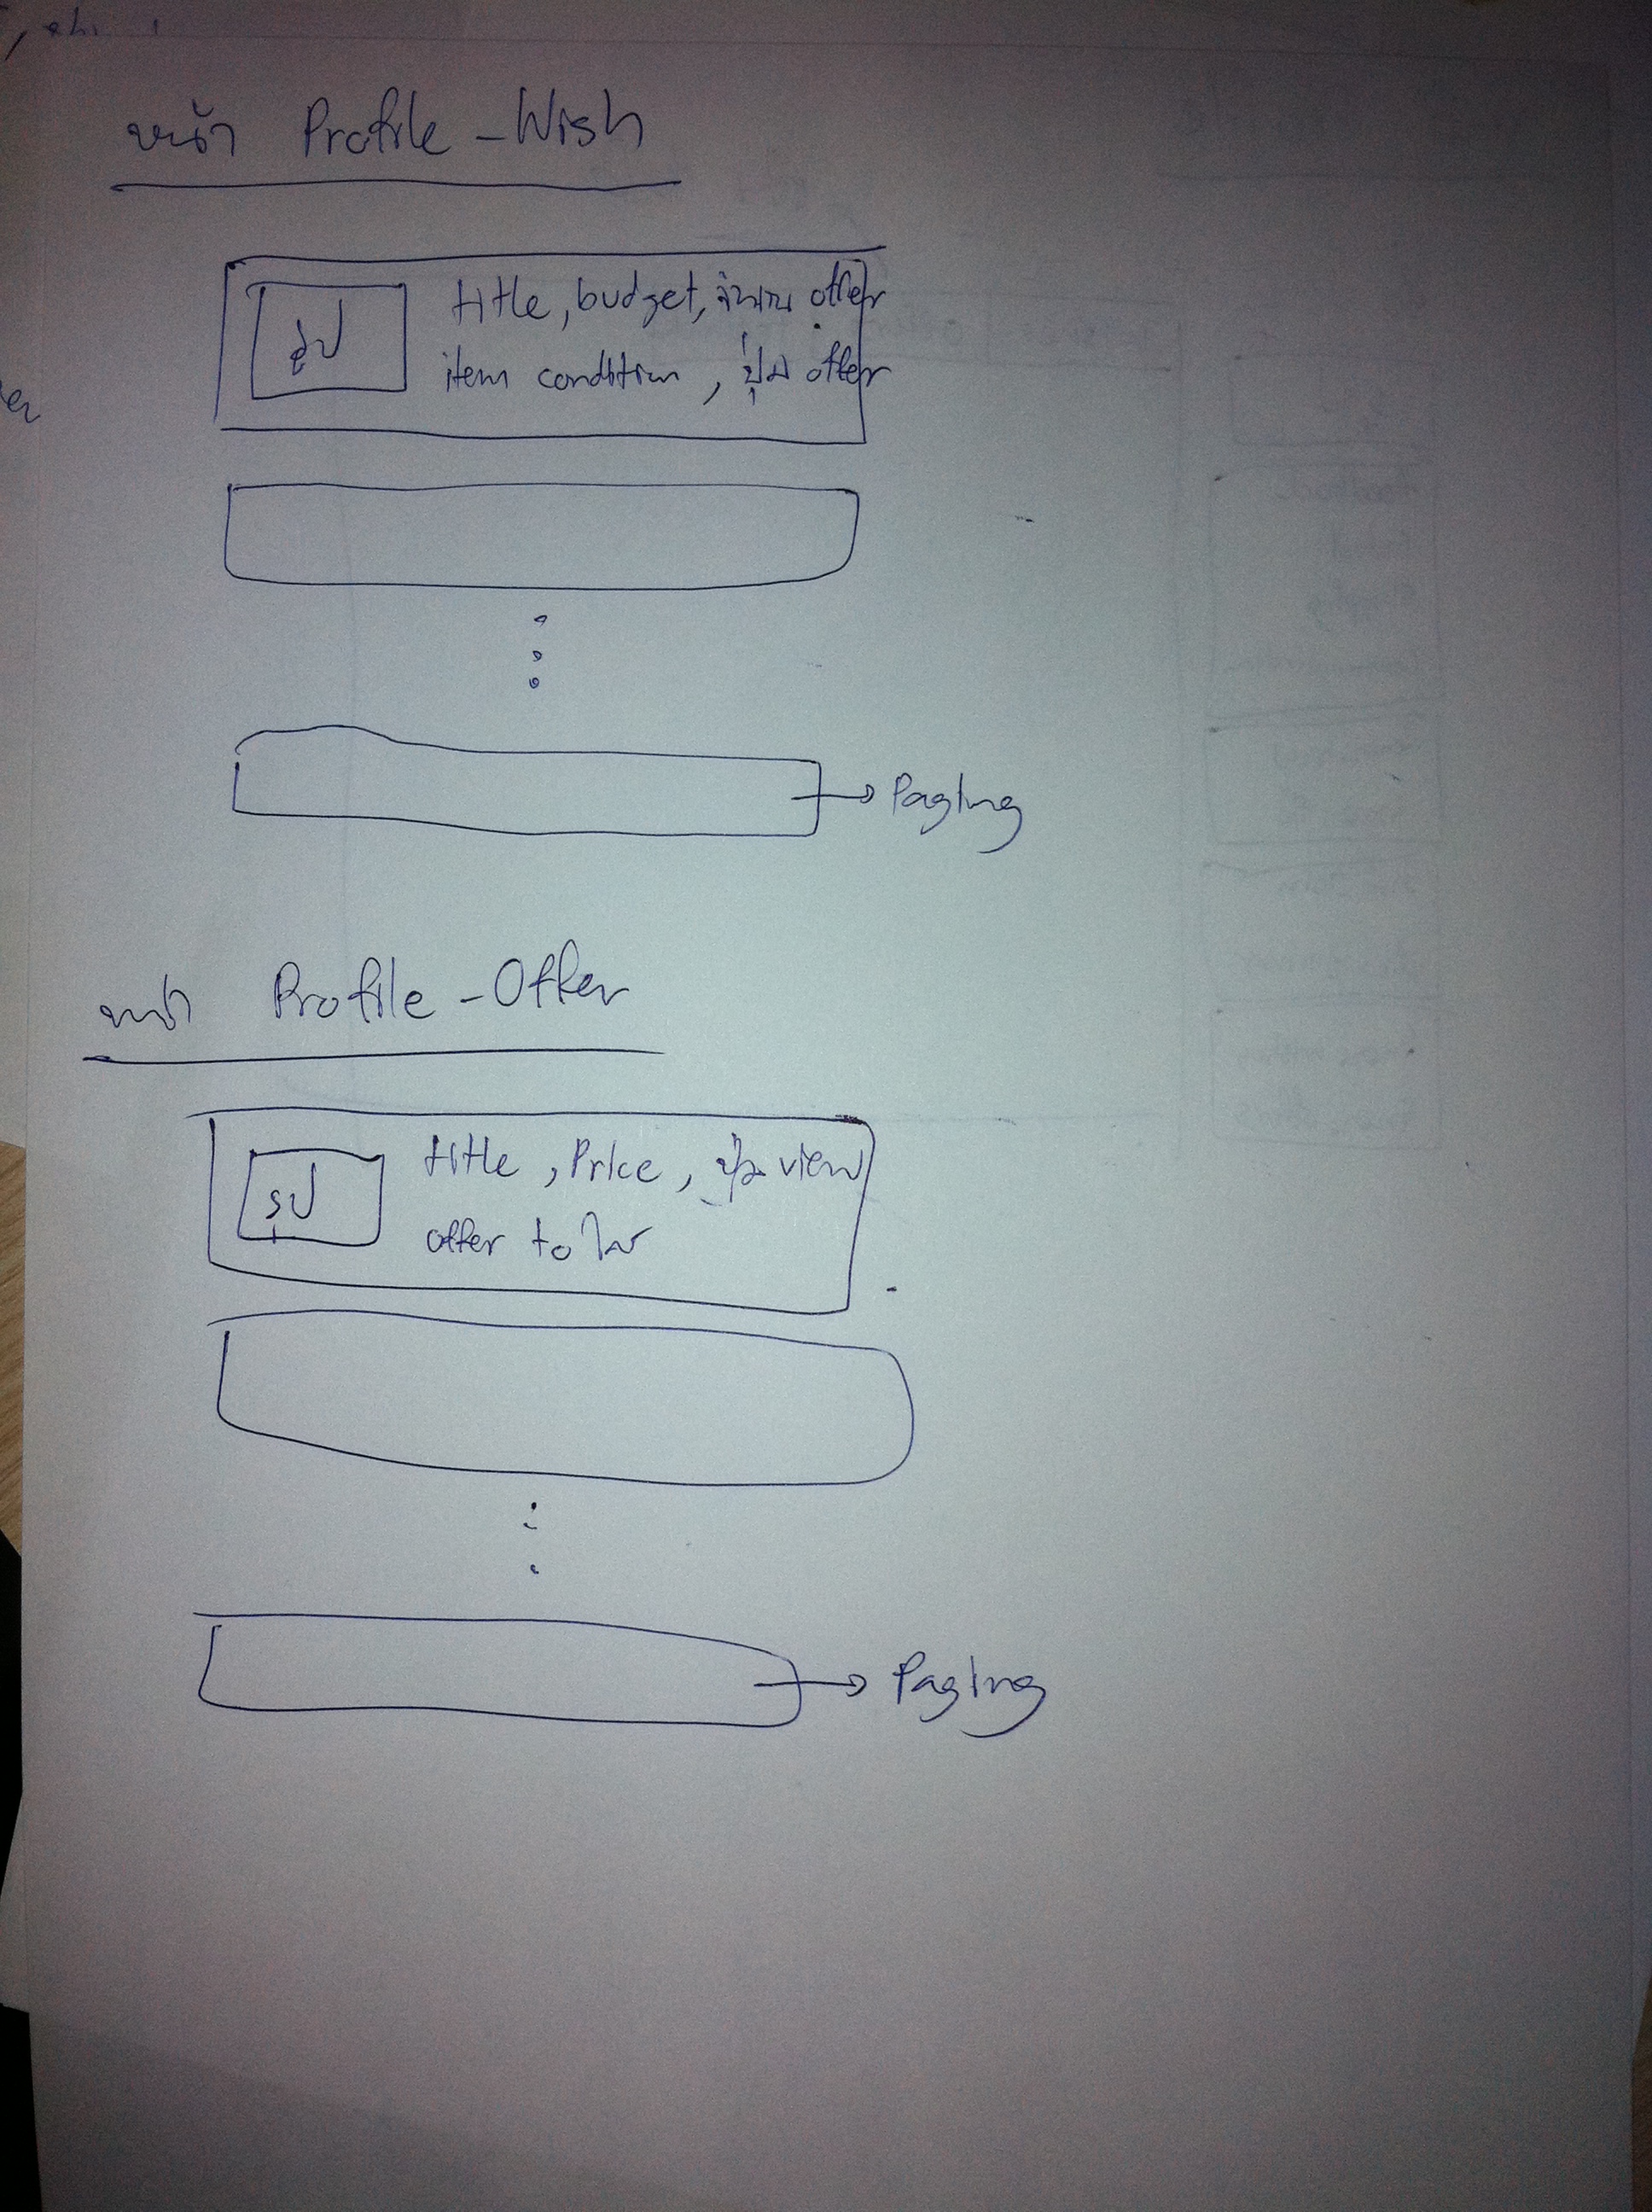 หน้า Profile - Wish
รูป
title, budget, จำนวน offer
item condition, ปุ่ม offer
→ Paging
หน้า Profile - Offer
รูป
title, Price, ปุ่ม view
offer to ใคร
→ Paging